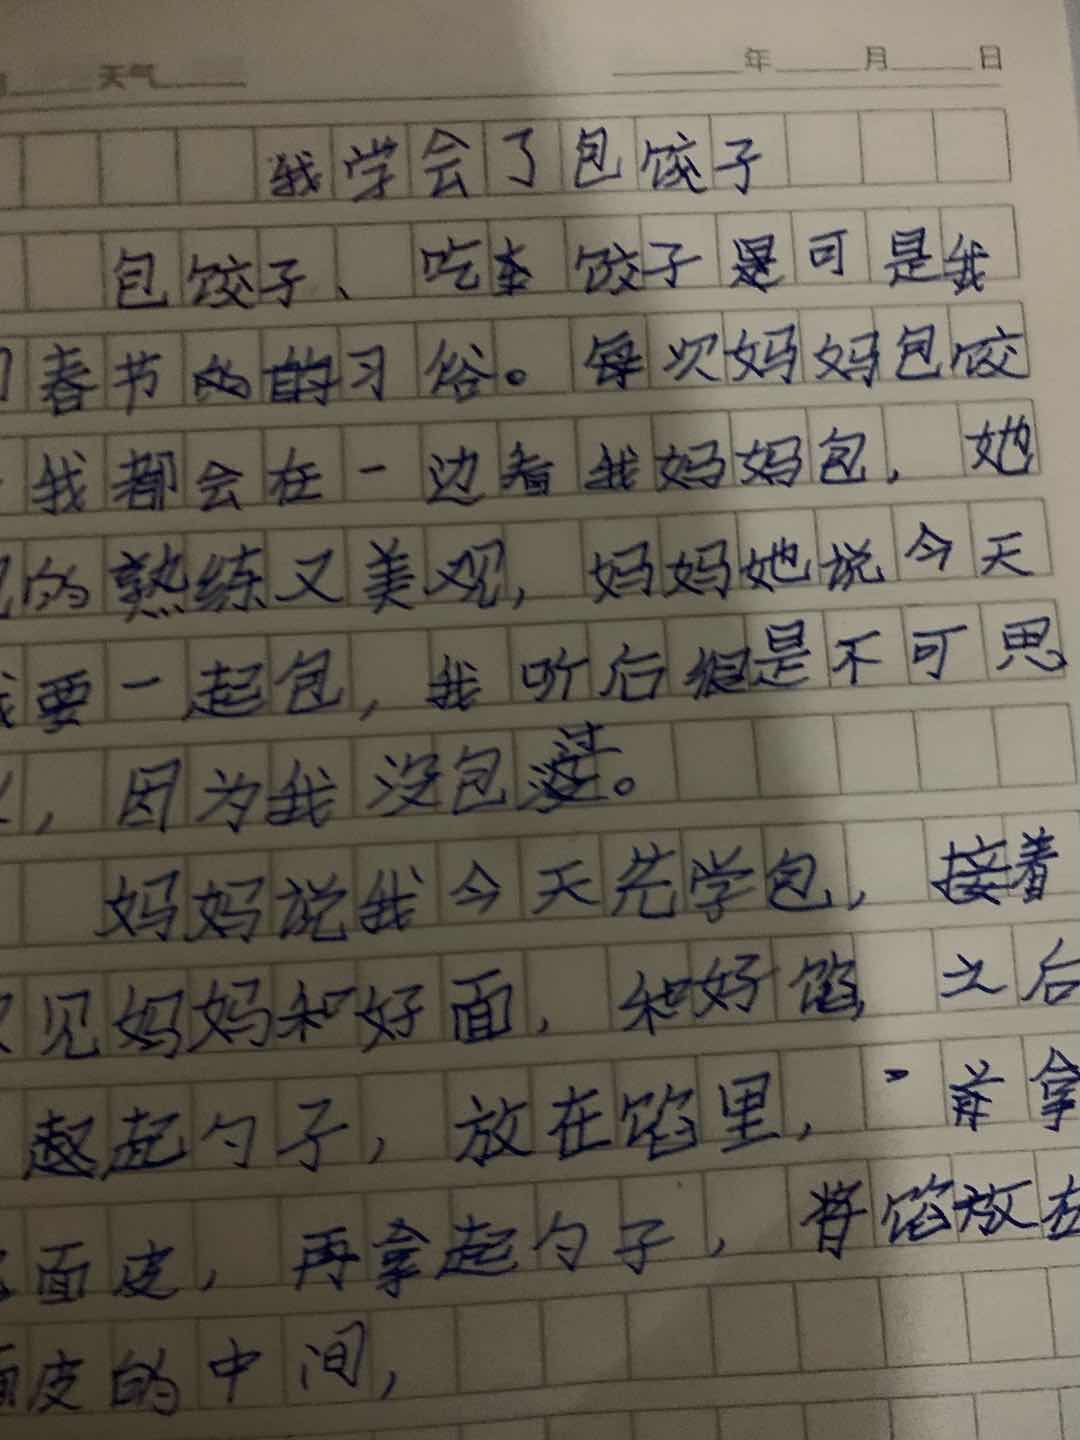 天气 年 月 日
我学会了包饺子
包饺子、吃饺子是可是我
春节的习俗。每次妈妈包饺
我都会在一边看我妈妈包，她
的熟练又美观，妈妈她说今天
要一起包，我听后很是不可思
，因为我没包过。
妈妈说我今天先学包，接着
见妈妈和好面，和好馅，之后
起勺子，放在馅里，前拿
面皮，再拿起勺子，将馅放在
皮的中间，